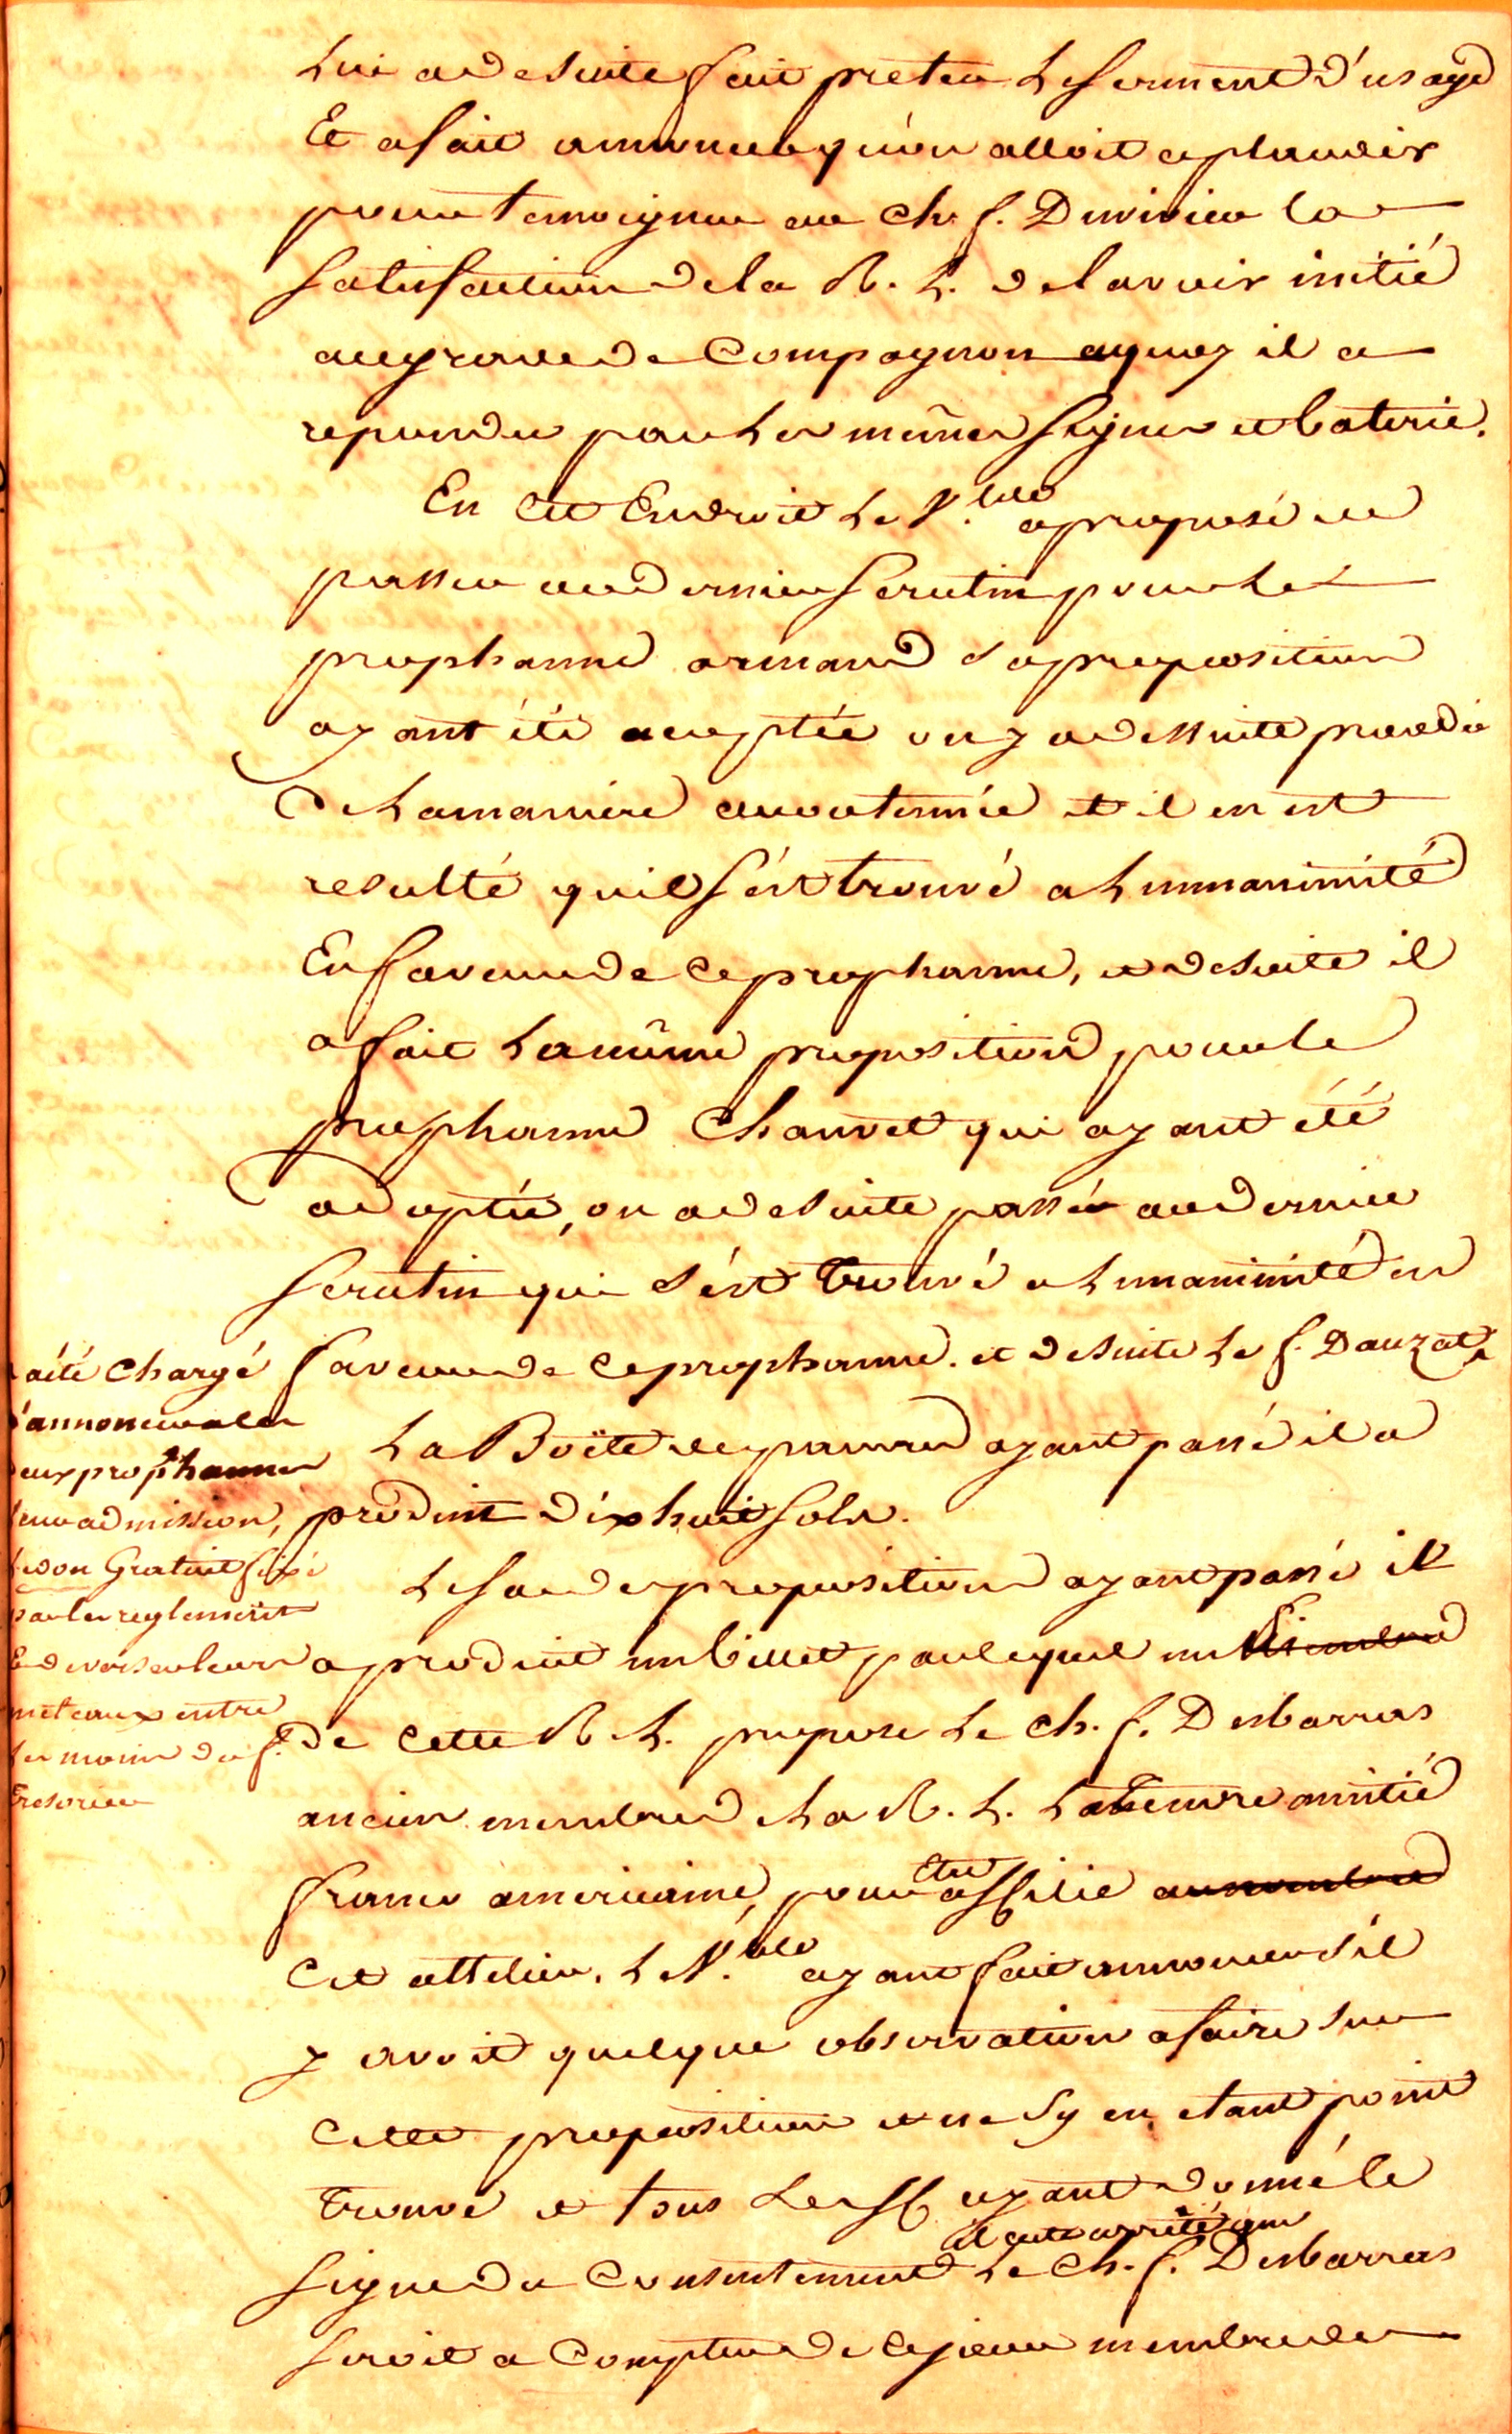 lui a desuite fait preter le serment d'usage
Et a fait annoncer qu'on alloit aplaudir
pour temoigner au Ch. f. Duvivier la
satisfaction de la R. L. de lavoir initié
au grade de Compagnon aquoy il a
repondu par les mêmes signes et baterie.
En Cet Endroit le V.ble a proposé de
passer au dernier scrutin pour le
prophanne armand sa proposition
ayant été acceptée on y a dessuite procedé
de la maniere accoutumée et il en est
resulté quil s'ést trouvé a lunnanimité
En faveur de ce prophanne, et desuite il
a fait la même proposition pour le
prophanne Chauvet qui ayant été
adoptée, on a desuite passé au dernier
scrutin qui s'ést trouvé a lunanimité en
faveur de ce prophanne. et desuite le f. Dauzat
a été chargé
d'annoncer aux
deux prophannes
leur admission,
le don Gratuit fixé
par les reglements
Et de verser leurs
meteaux entre
les mains du f.
Tresorier
La Boëte des pauvres ayant passé il a
produit dix huit sols.
Le sac des propositions ayant passé il
a produit un billet par lequel un membre
de cette R. L. propose le ch. f. Desbarras
ancien membre de la R. L. la sincere amitié
franco americaine, pour etre affilié au nombre
Cet attelier. Le V.ble ayant fait annoncer s'il
y avoit quelque observation a faire sur
Cette proposition et ne sy en etant point
trouvé et tous les ff ayant donné le
signe du Consentement il a eté arrêté que le ch. f. Desbarras
seroit a Compter de ce jour membre de